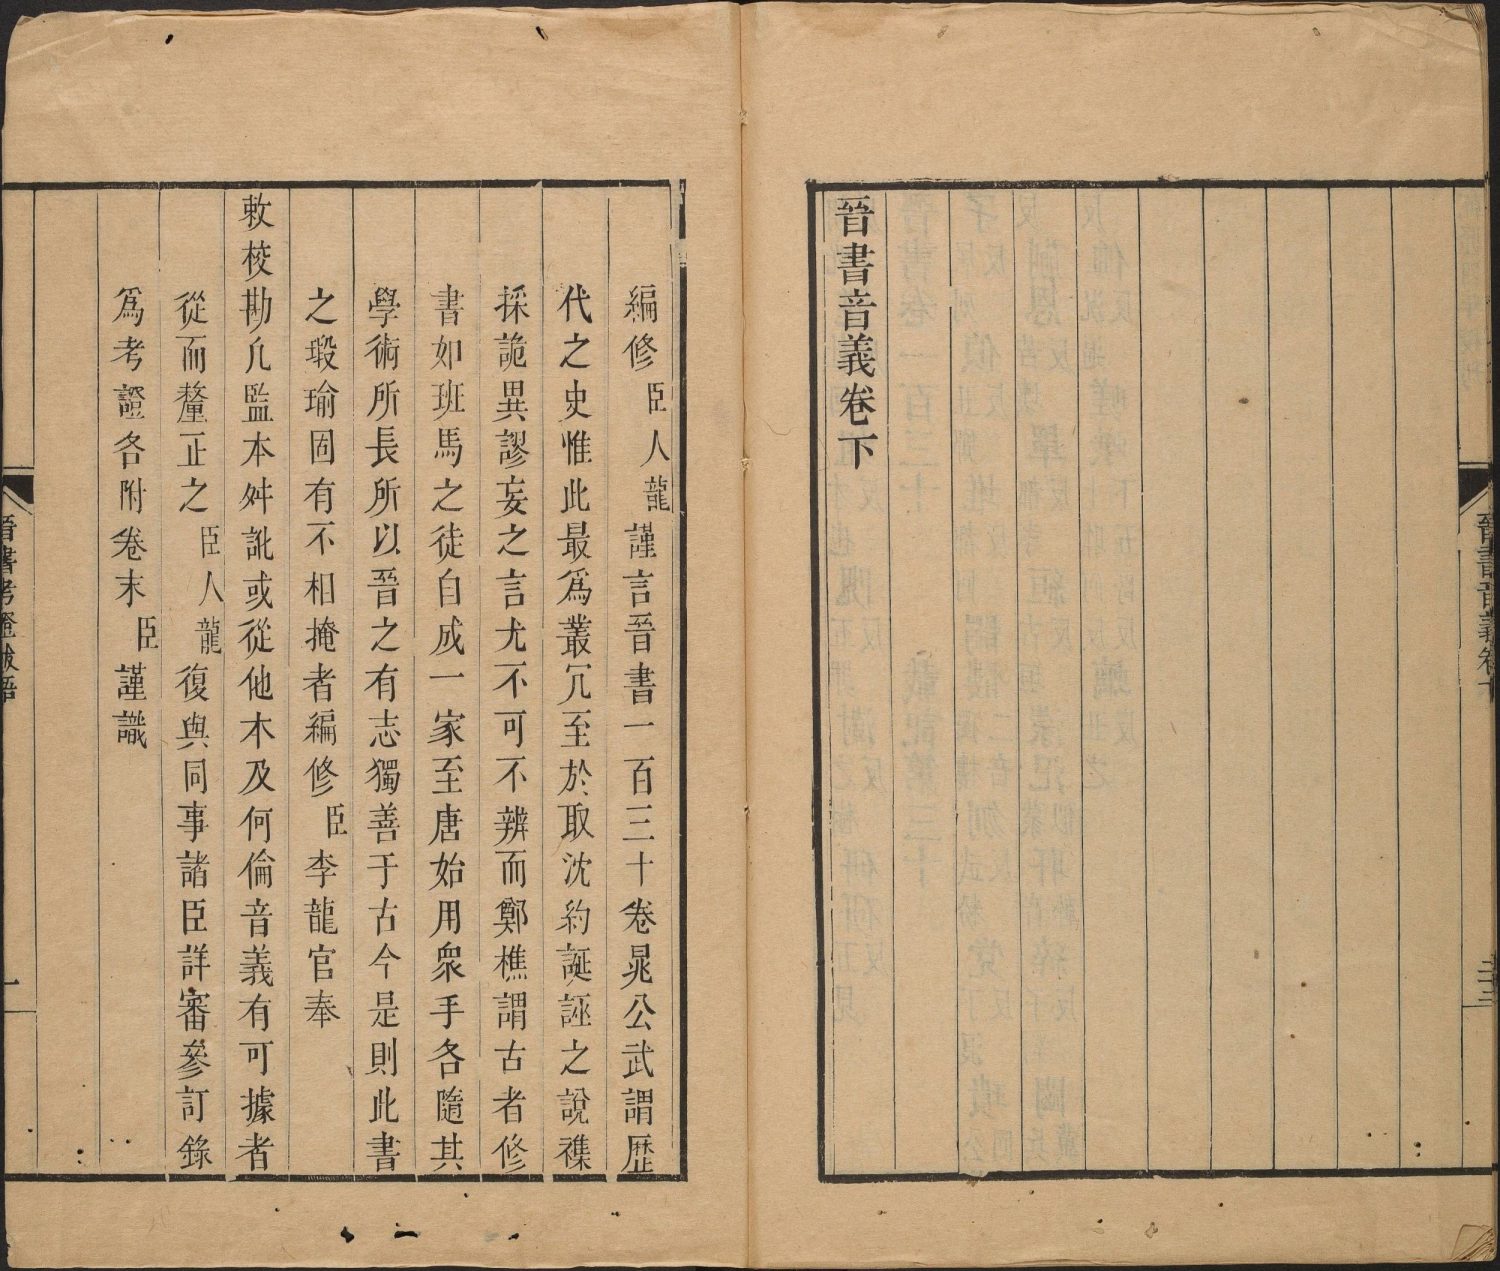 晉書音義卷下
編修臣人龍謹言晉書一百三十卷晁公武謂歷
代之史惟此最爲叢冗至於取沈約誕誣之說襍
採詭異謬妄之言尤不可不辨而鄭樵謂古者修
書如班馬之徒自成一家至唐始用衆手各隨其
學術所長所以晉之有志獨善于古今是則此書
之瑕瑜固有不相掩者編修臣李龍官奉
敕校勘凡監本舛訛或從他本及何倫音義有可據者
從而釐正之臣人龍復與同事諸臣詳審參訂錄
爲考證各附卷末臣謹識
晉書考證跋語
一